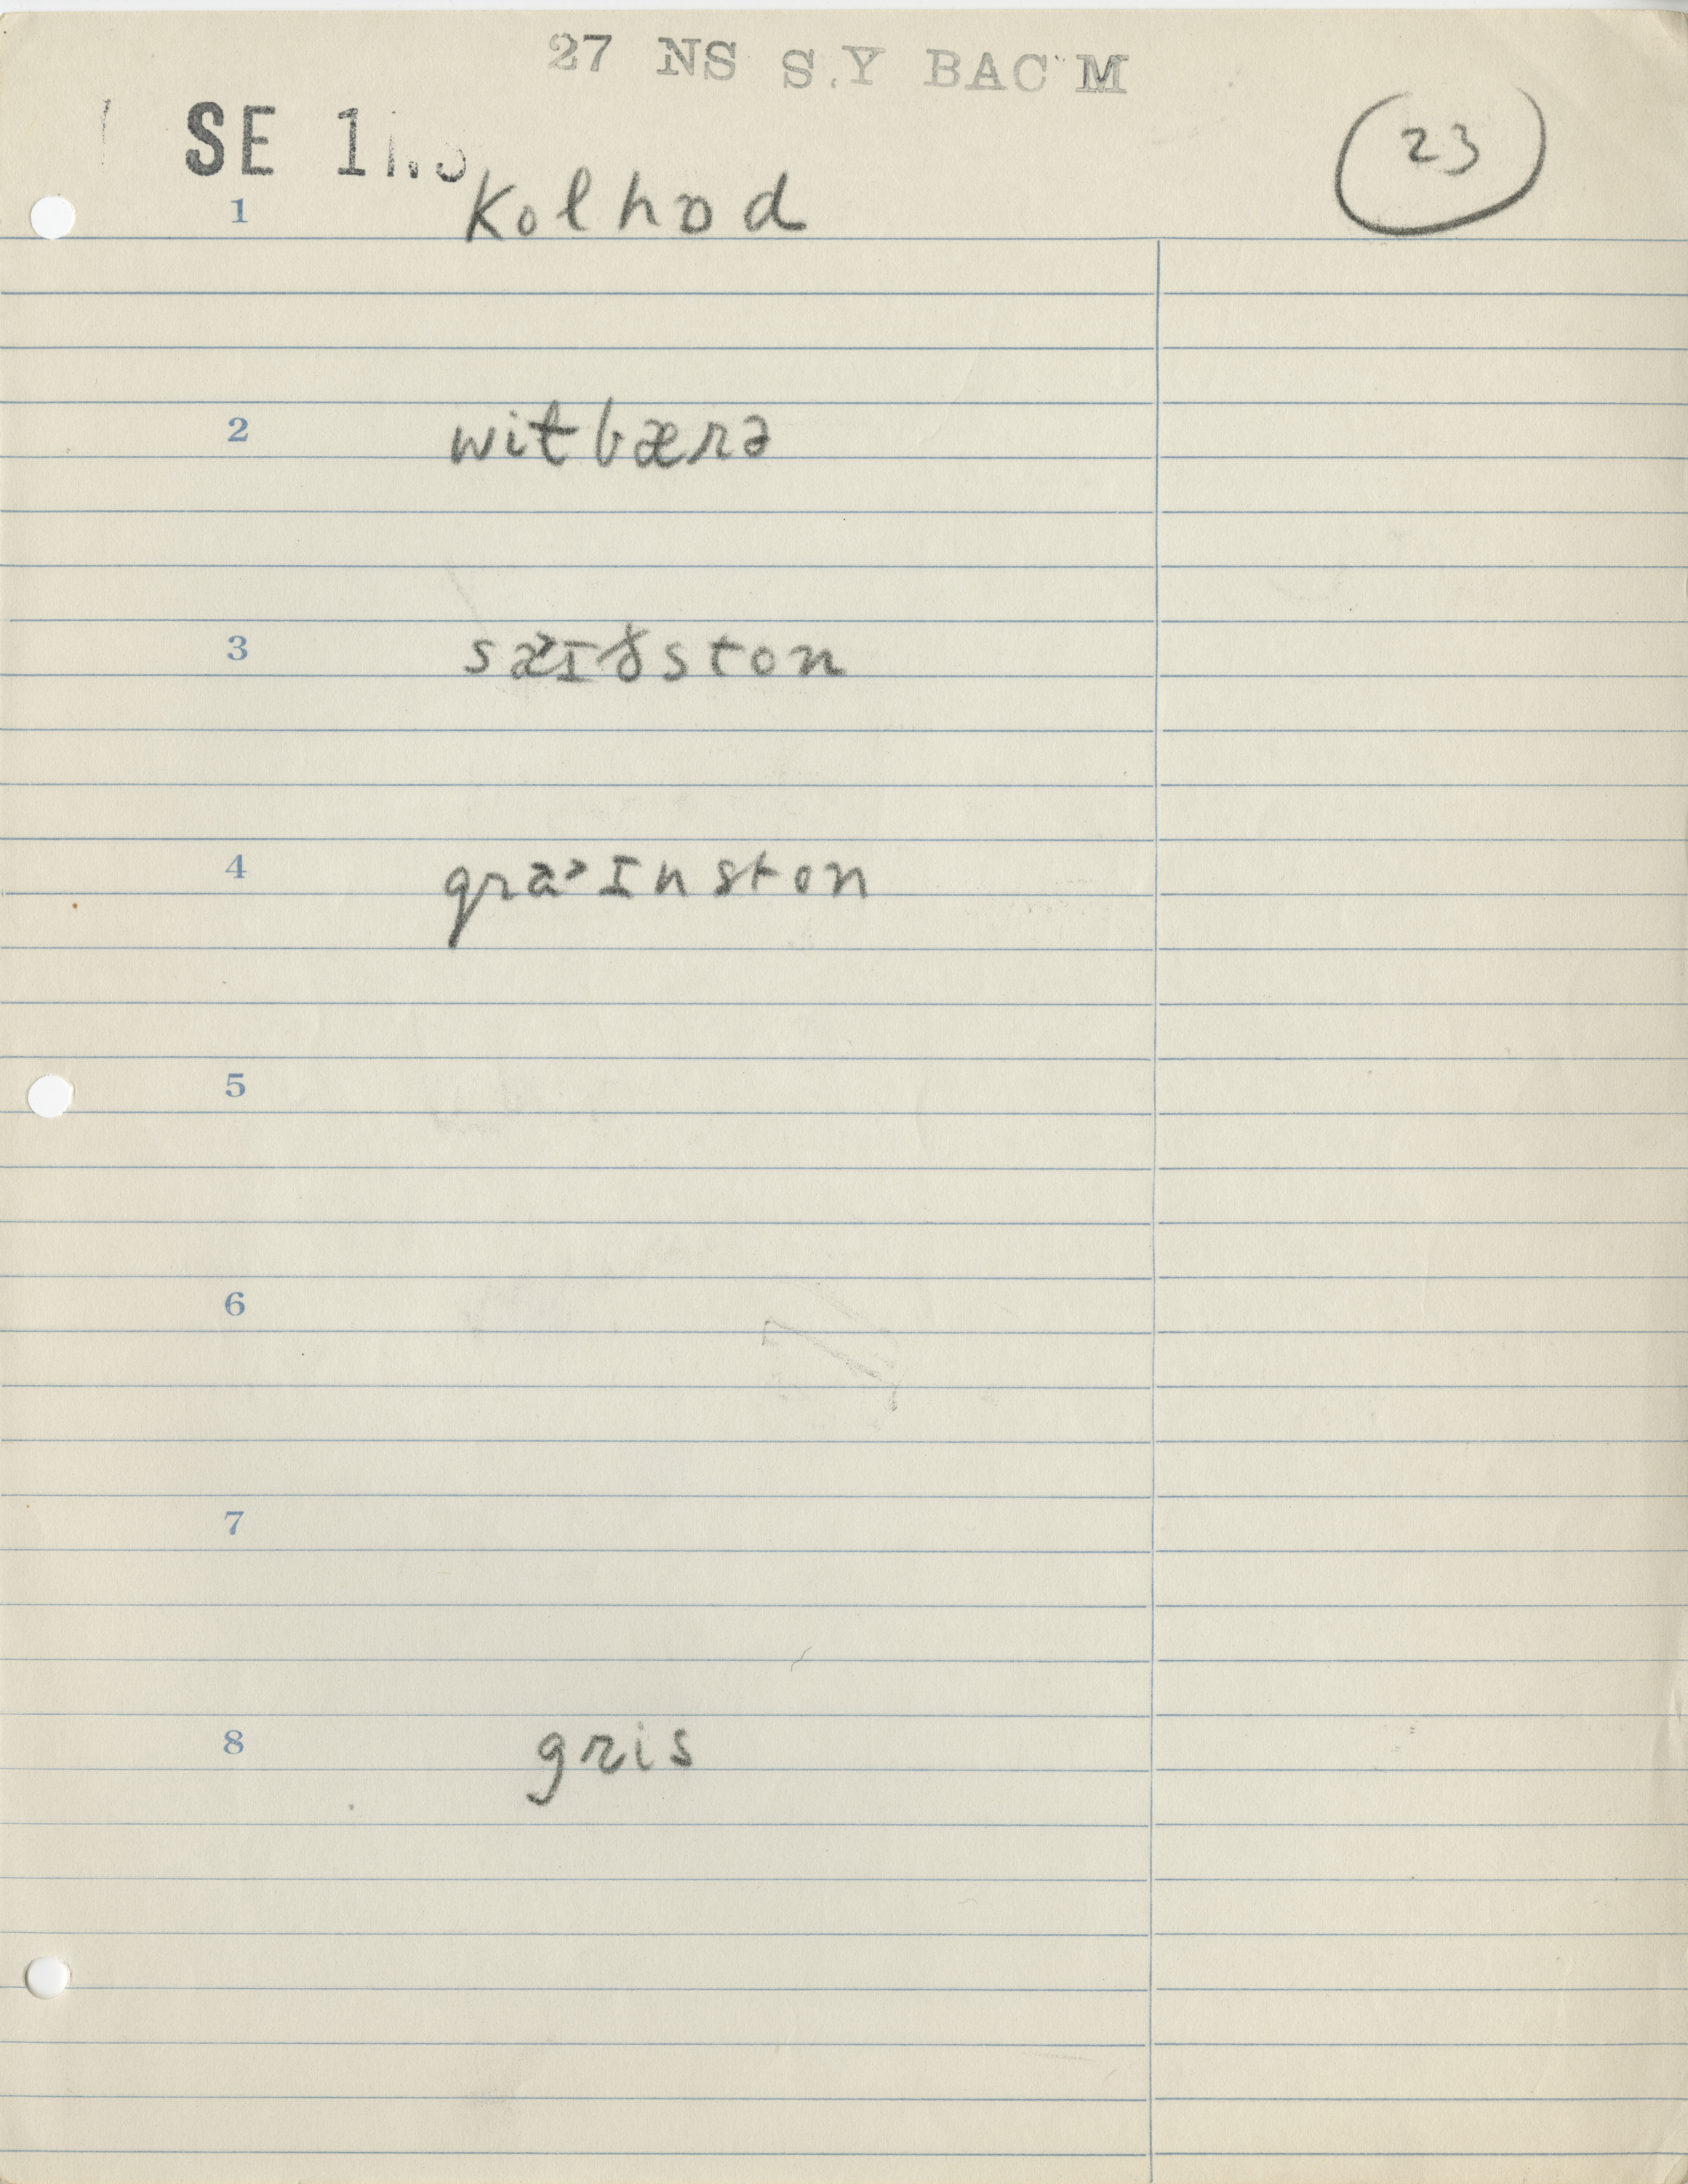 27 NS S.Y BAC M
SE 1
23
1 Kolhod
2 witbærə
3 sæɪɣston
4 græ˃ɪnston
5
6
7
8 gris